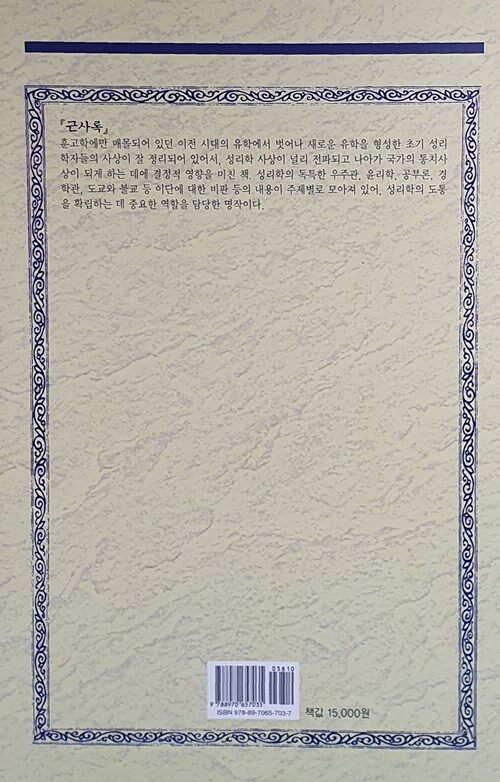 『근사록』
훈고학에만 매몰되어 있던 이전 시대의 유학에서 벗어나 새로운 유학을 형성한 초기 성리
학자들의 사상이 잘 정리되어 있어서, 성리학 사상이 널리 전파되고 나아가 국가의 통치사
상이 되게 하는 데에 결정적 영향을 미친 책. 성리학의 독특한 우주관, 윤리학, 공부론, 경
학관, 도교와 불교 등 이단에 대한 비판 등의 내용이 주제별로 모아져 있어, 성리학의 도통
을 확립하는 데 중요한 역할을 담당한 명작이다.
03810
9 788970 657035
ISBN 978-89-7065-703-7
책값 15,000원